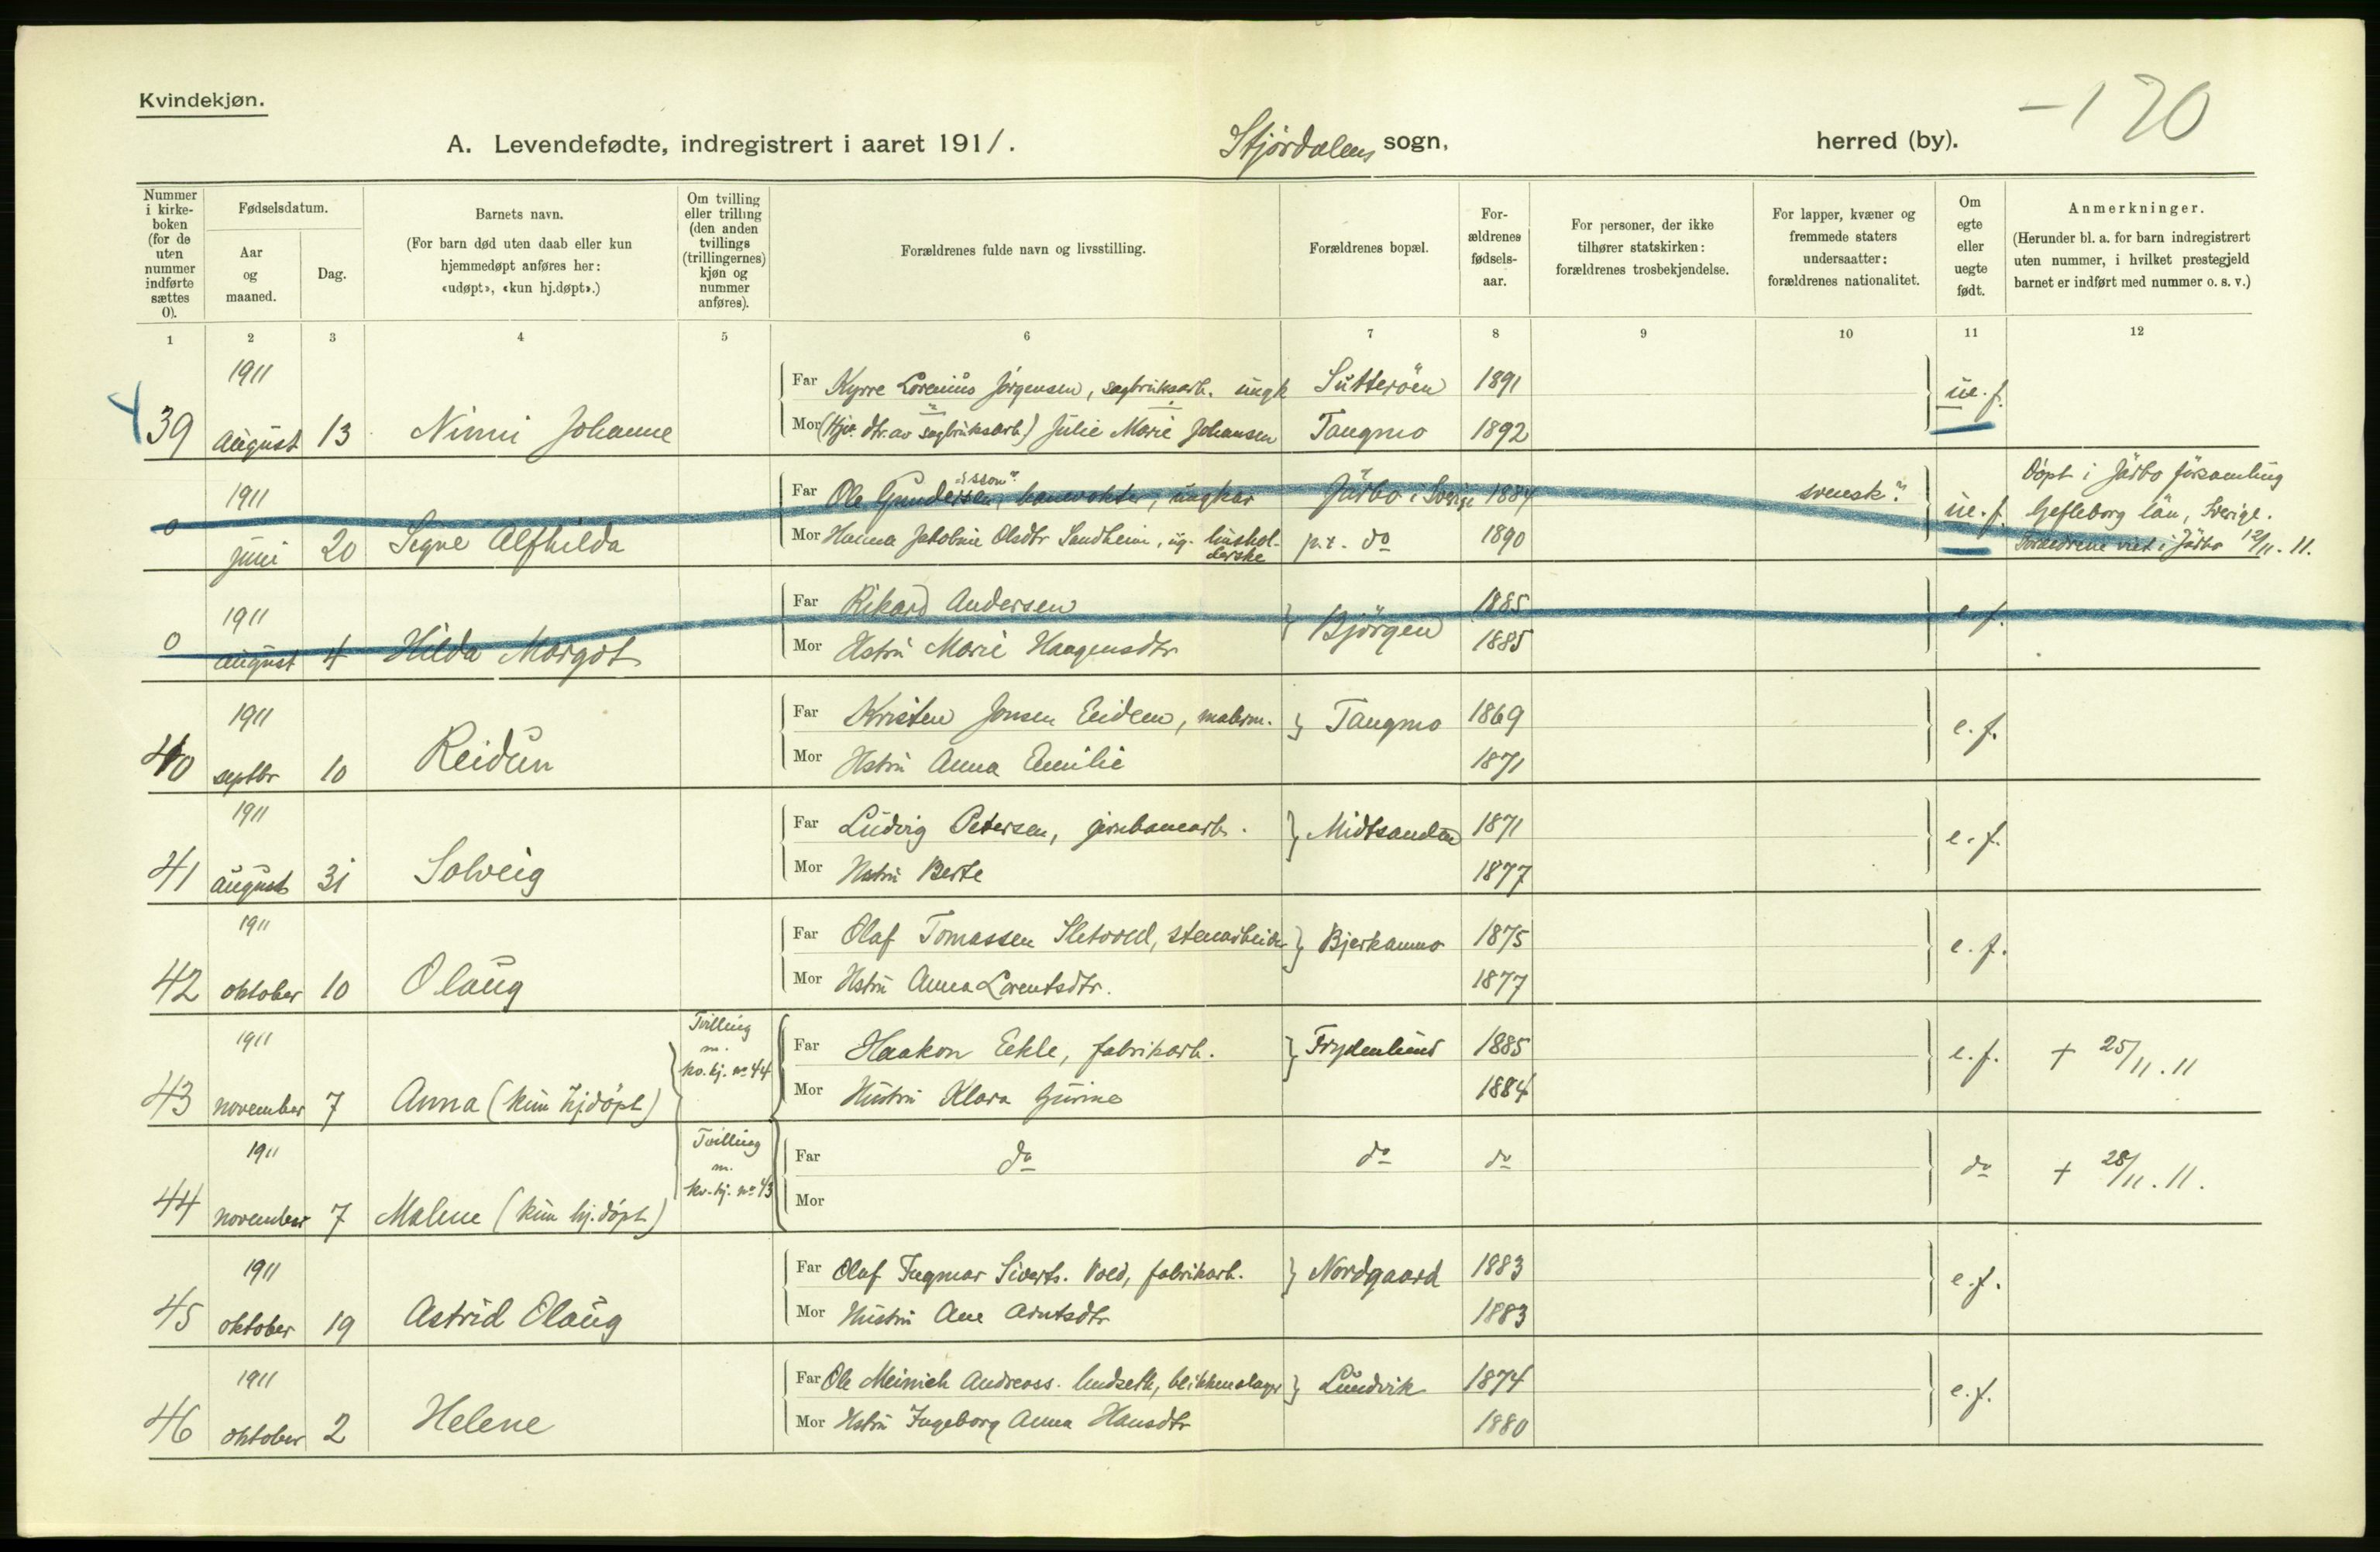 Kvindekjøn.
-170
A. Levendefødte, indregistrert i aaret 1911. Stjördalens sogn, herred (by).
Nummer i kirke-boken (for de uten nummer indførte sættes 0).
Fødselsdatum.
Aar og maaned.
Dag.
Barnets navn.
(For barn død uten daab eller kun hjemmedøpt anføres her: «udøpt», «kun hj.døpt».)
Om tvilling eller trilling (den anden tvillings (trillingernes) kjøn og nummer anføres).
Forældrenes fulde navn og livsstilling.
Forældrenes bopæl.
For-ældrenes fødsels-aar.
For personer, der ikke tilhører statskirken: forældrenes trosbekjendelse.
For lapper, kvæner og fremmede staters undersaatter: forældrenes nationalitet.
Om egte eller uegte født.
Anmerkninger.
(Herunder bl. a. for barn indregistrert uten nummer, i hvilket prestegjeld barnet er indført med nummer o. s. v.)
1 2 3 4 5 6 7 8 9 10 11 12
1911 Far Kyrre Lorenius Jörgensen, sagbruksarb. ungk Sutteröen 1891 ue. f.
39 august 13 Nimi Johanne Mor (Hjv. dtr. av sagbruksarb.) Julie Marie Johansen Tangmo 1892
1911 Far Ole Gundersen, "isson" banevokter, ungkar Järbo i Sverige 1884 svensk? ue. f. Döpt i Järbo församling Gefleborg län, Sverige.
0 juni 20 Segne Alfhilda Mor Hanna Jakobine Olsdtr Sandheim, ug. hushol-derske p.t. do 1890 Foreldrene viet i Järbo 12/11. 11.
1911 Far Rikard Andersen Björgen 1885 e. f.
0 august 4 Hilda Margot Mor Hstru Marie Haagensdtr 1885
1911 Far Kristen Jonsen Eidem, malerm. Tangmo 1869 e. f.
40 septbr 10 Reidun Mor Hstru Anna Emilie 1871
1911 Far Ludvig Petersen, jernbanearb. Midtsanden 1871 e. f.
41 august 31 Solveig Mor Hstru Berte 1877
1911 Far Olaf Tomassen Sletvold, stenarbeider Bjerkanmo 1875 e. f.
42 oktober 10 Olaug Mor Hstru Anna Lorentsdtr. 1877
1911 Tvilling m. kv. kj. no 44 Far Haakon Eekle, fabrikarb. Frydenlund 1885 e. f. + 25/11. 11
43 november 7 Anna (kun hjdöpt) Mor Hustru Klara Gurine 1884
1911 Tvilling m. kv. kj. no 43 Far do do do do + 28/11. 11.
44 november 7 Malene (kun hj. döpt) Mor
1911 Far Olaf Ingmar Siverts. Vold, fabrikarb. Nordgaard 1883 e. f.
45 oktober 19 Astrid Olaug Mor Hustru Ane Arntsdtr 1883
1911 Far Ole Meinich Andreass. Lundseth, blikkenslager Lundvik 1874 e. f.
46 oktober 2 Helene Mor Hstru Ingeborg Anna Hansdtr 1880